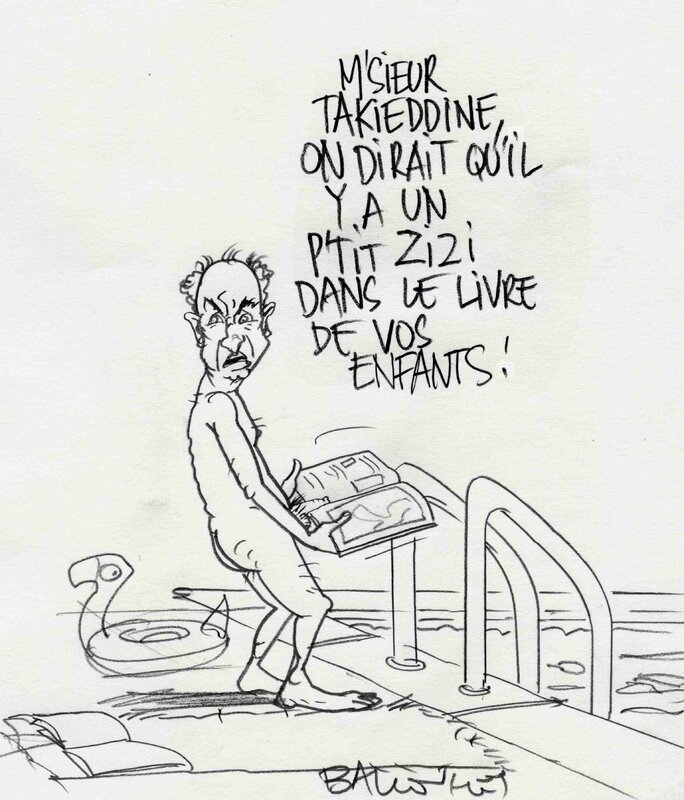 M'SIEUR
TAKIEDDINE,
ON DIRAIT QU'IL
Y A UN
P'TIT ZIZI
DANS LE LIVRE
DE VOS
ENFANTS !